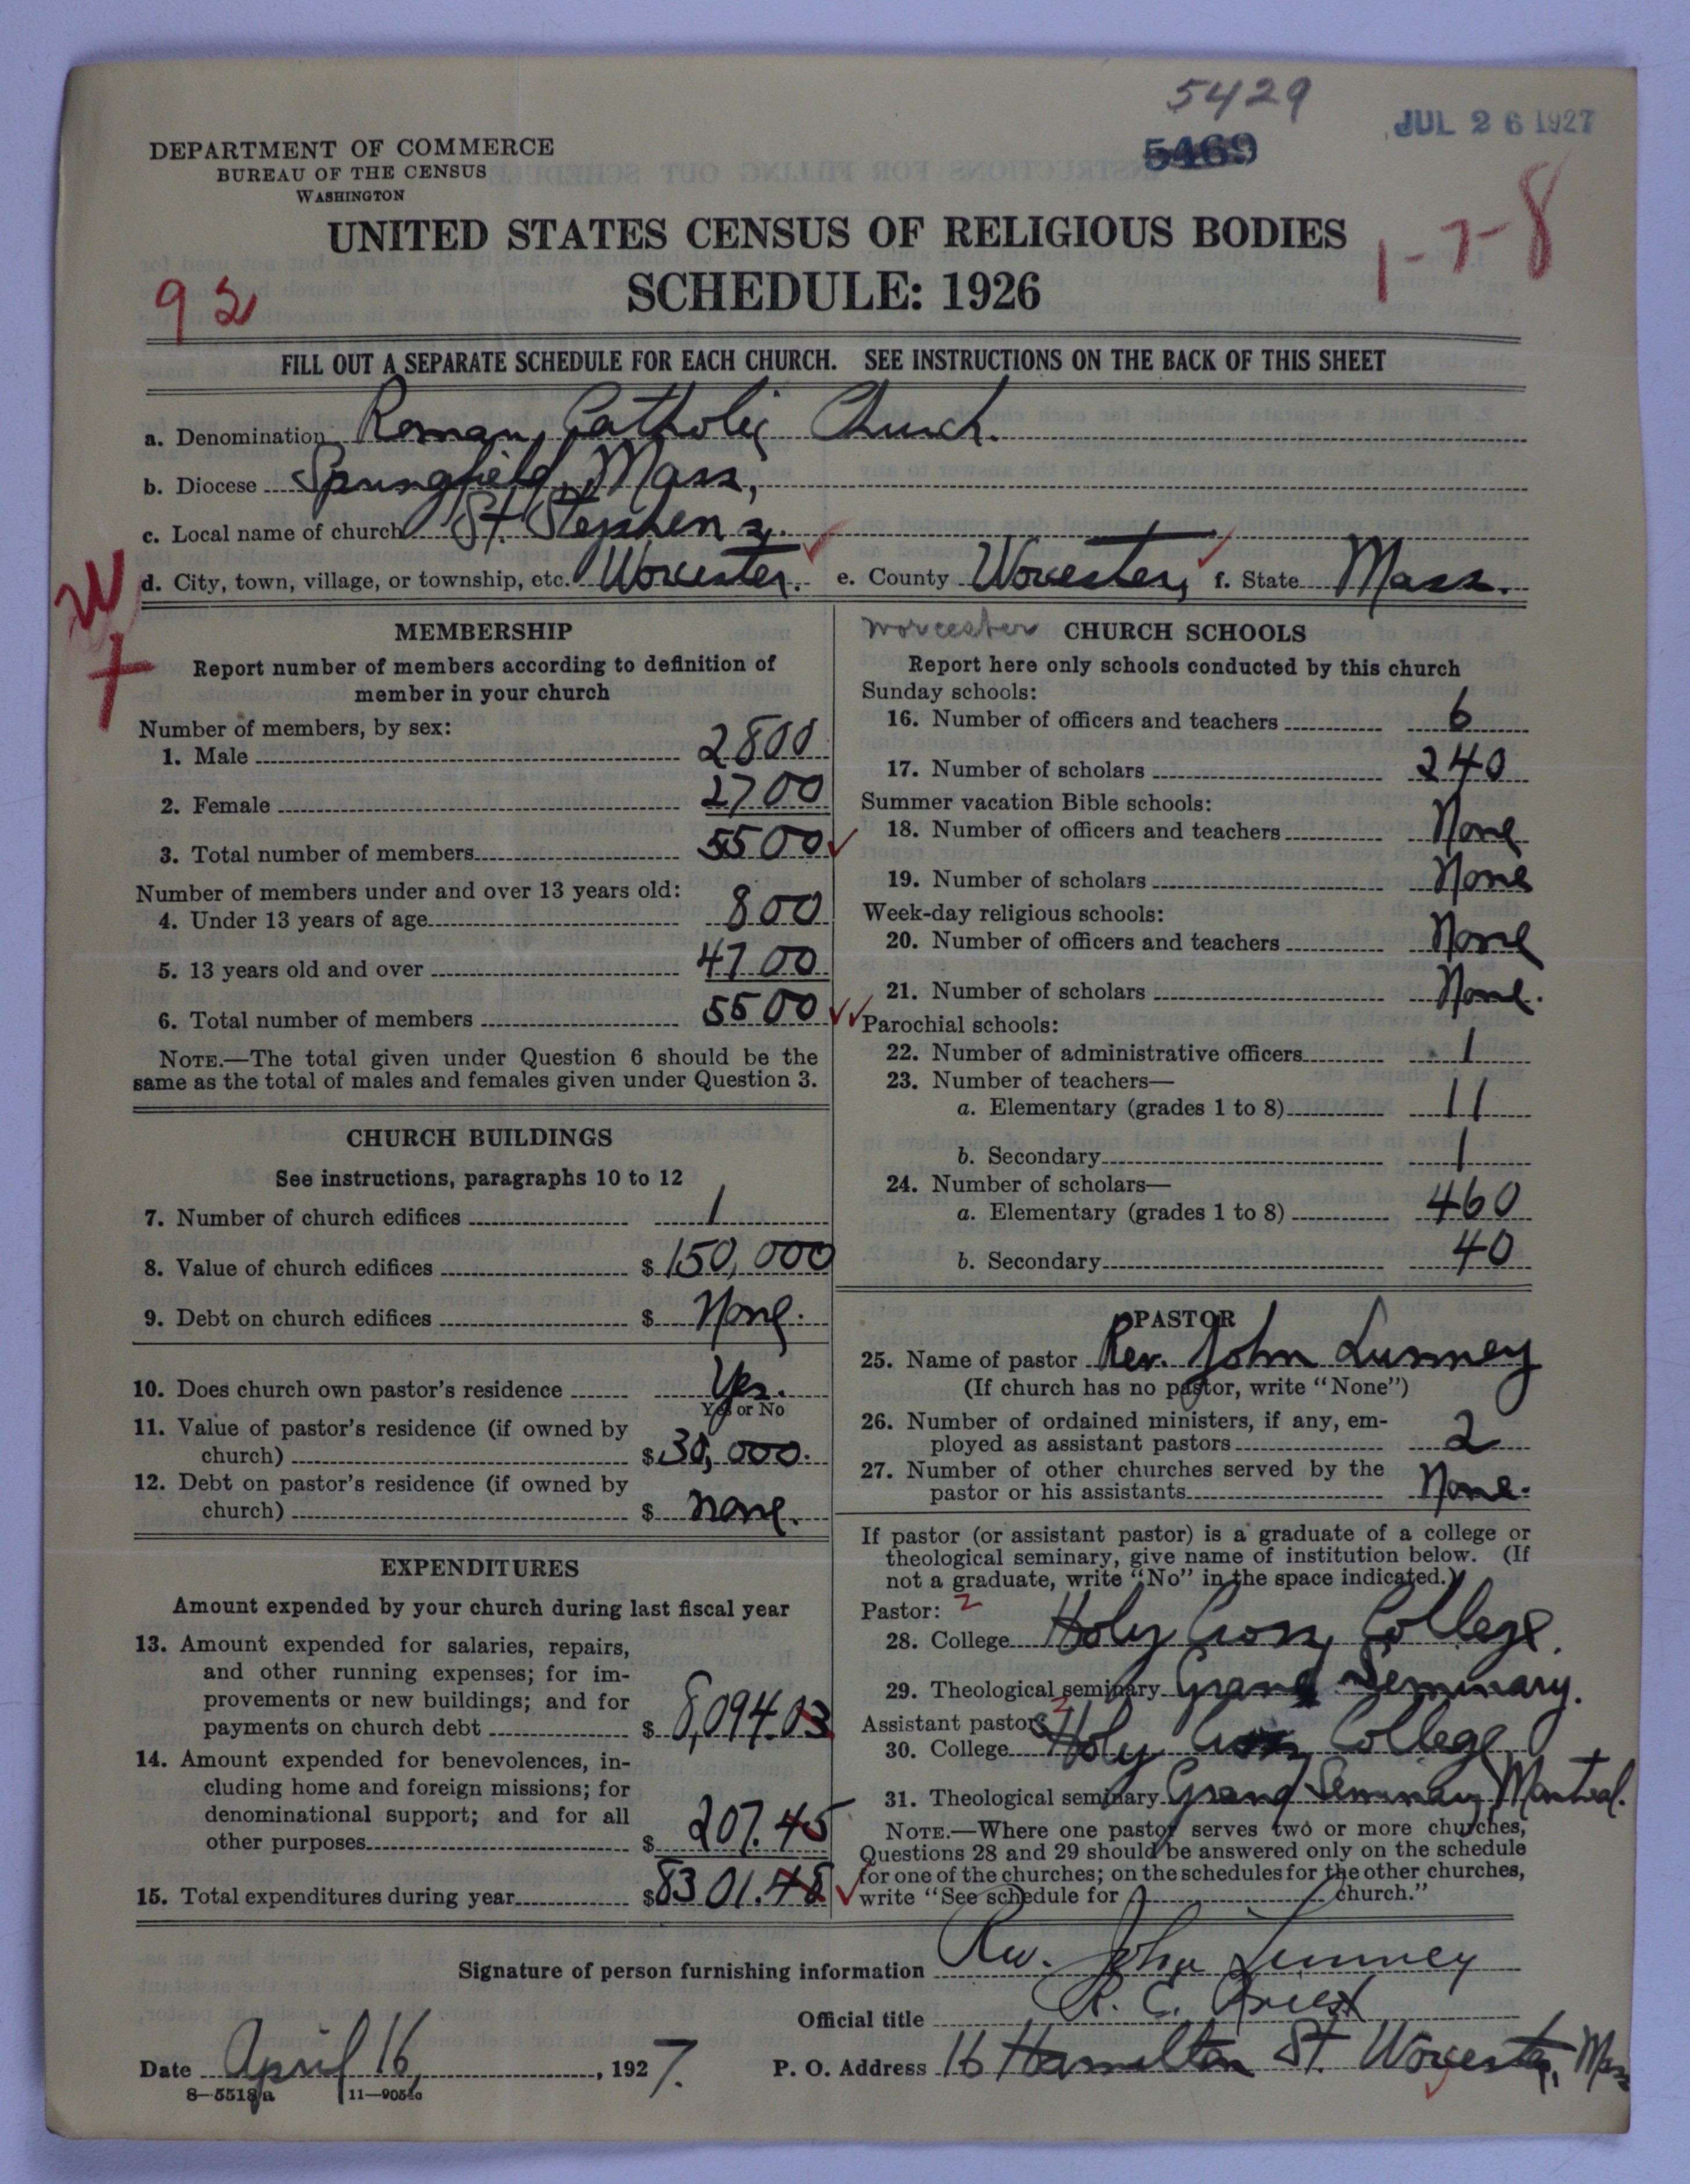 5429
JUL 26 1927
5469
DEPARTMENT OF COMMERCE
BUREAU OF THE CENSUS
WASHINGTON
UNITED STATES CENSUS OF RELIGIOUS BODIES
1-7-8
SCHEDULE: 1926
92
FILL OUT A SEPARATE SCHEDULE FOR EACH CHURCH. SEE INSTRUCTIONS ON THE BACK OF THIS SHEET
a. Denomination Roman Catholic Church.
b. Diocese Springfield, Mass,
c. Local name of church St. Stephens,
d. City, town, village, or township, etc. Worcester. e. County Worcester, f. State Mass.
MEMBERSHIP
Report number of members according to definition of
member in your church
Number of members, by sex:
1. Male 2800
2. Female 2700
3. Total number of members 5500
Number of members under and over 13 years old:
4. Under 13 years of age 800
5. 13 years old and over 4700
6. Total number of members 5500
NOTE.—The total given under Question 6 should be the
same as the total of males and females given under Question 3.
CHURCH BUILDINGS
See instructions, paragraphs 10 to 12
7. Number of church edifices 1
8. Value of church edifices $150,000
9. Debt on church edifices $ None.
10. Does church own pastor's residence Yes.
Yes or No
11. Value of pastor's residence (if owned by
church) $30,000.
12. Debt on pastor's residence (if owned by
church) $ none.
EXPENDITURES
Amount expended by your church during last fiscal year
13. Amount expended for salaries, repairs,
and other running expenses; for im-
provements or new buildings; and for
payments on church debt $ 8,094.03
14. Amount expended for benevolences, in-
cluding home and foreign missions; for
denominational support; and for all
other purposes $ 207.45
15. Total expenditures during year $8301.48
Worcester CHURCH SCHOOLS
Report here only schools conducted by this church
Sunday schools:
16. Number of officers and teachers 6
17. Number of scholars 240
Summer vacation Bible schools:
18. Number of officers and teachers None
19. Number of scholars None
Week-day religious schools:
20. Number of officers and teachers None
21. Number of scholars None.
Parochial schools:
22. Number of administrative officers 1
23. Number of teachers—
a. Elementary (grades 1 to 8) 11
b. Secondary 1
24. Number of scholars—
a. Elementary (grades 1 to 8) 460
b. Secondary 40
PASTOR
25. Name of pastor Rev. John Lunney
(If church has no pastor, write "None")
26. Number of ordained ministers, if any, em-
ployed as assistant pastors 2
27. Number of other churches served by the
pastor or his assistants None.
If pastor (or assistant pastor) is a graduate of a college or
theological seminary, give name of institution below. (If
not a graduate, write "No" in the space indicated.)
Pastor: 2
28. College Holy Cross College.
29. Theological seminary Grand Seminary.
Assistant pastors 2
30. College Holy Cross College
31. Theological seminary Grand Seminary Montreal.
NOTE.—Where one pastor serves two or more churches,
Questions 28 and 29 should be answered only on the schedule
for one of the churches; on the schedules for the other churches,
write "See schedule for church."
Signature of person furnishing information Rev. John Lunney
Official title R. C. Priest
Date April 16, 1927. P. O. Address 16 Hamilton St. Worcester, Mass
8—5518a 11—9054a